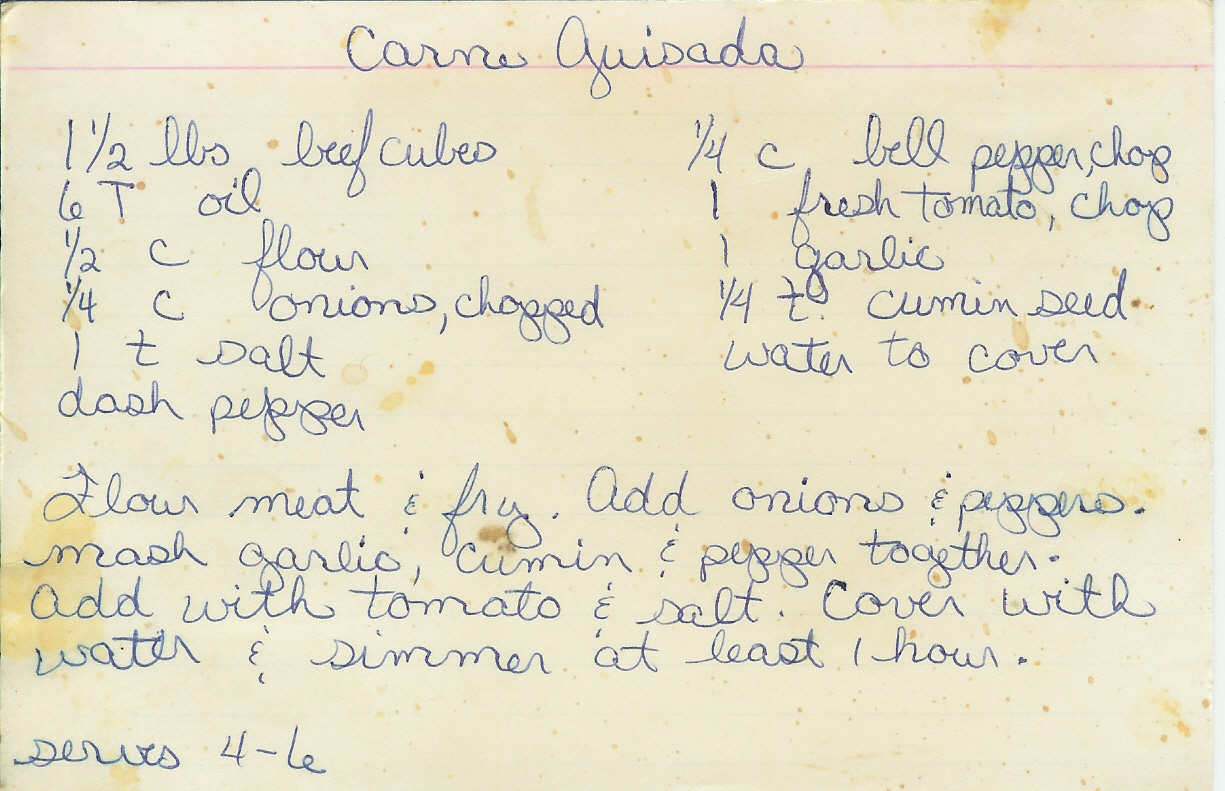 Carne Guisada
1 1/2 lbs beef cubes
6 T oil
1/2 c flour
1/4 c onions, chopped
1 t salt
dash pepper
1/4 c bell pepper, chop
1 fresh tomato, chop
1 garlic
1/4 t. cumin seed
water to cover
Flour meat & fry. Add onions & peppers.
mash garlic, cumin & pepper together.
Add with tomato & salt. Cover with
water & simmer at least 1 hour.
serves 4-6